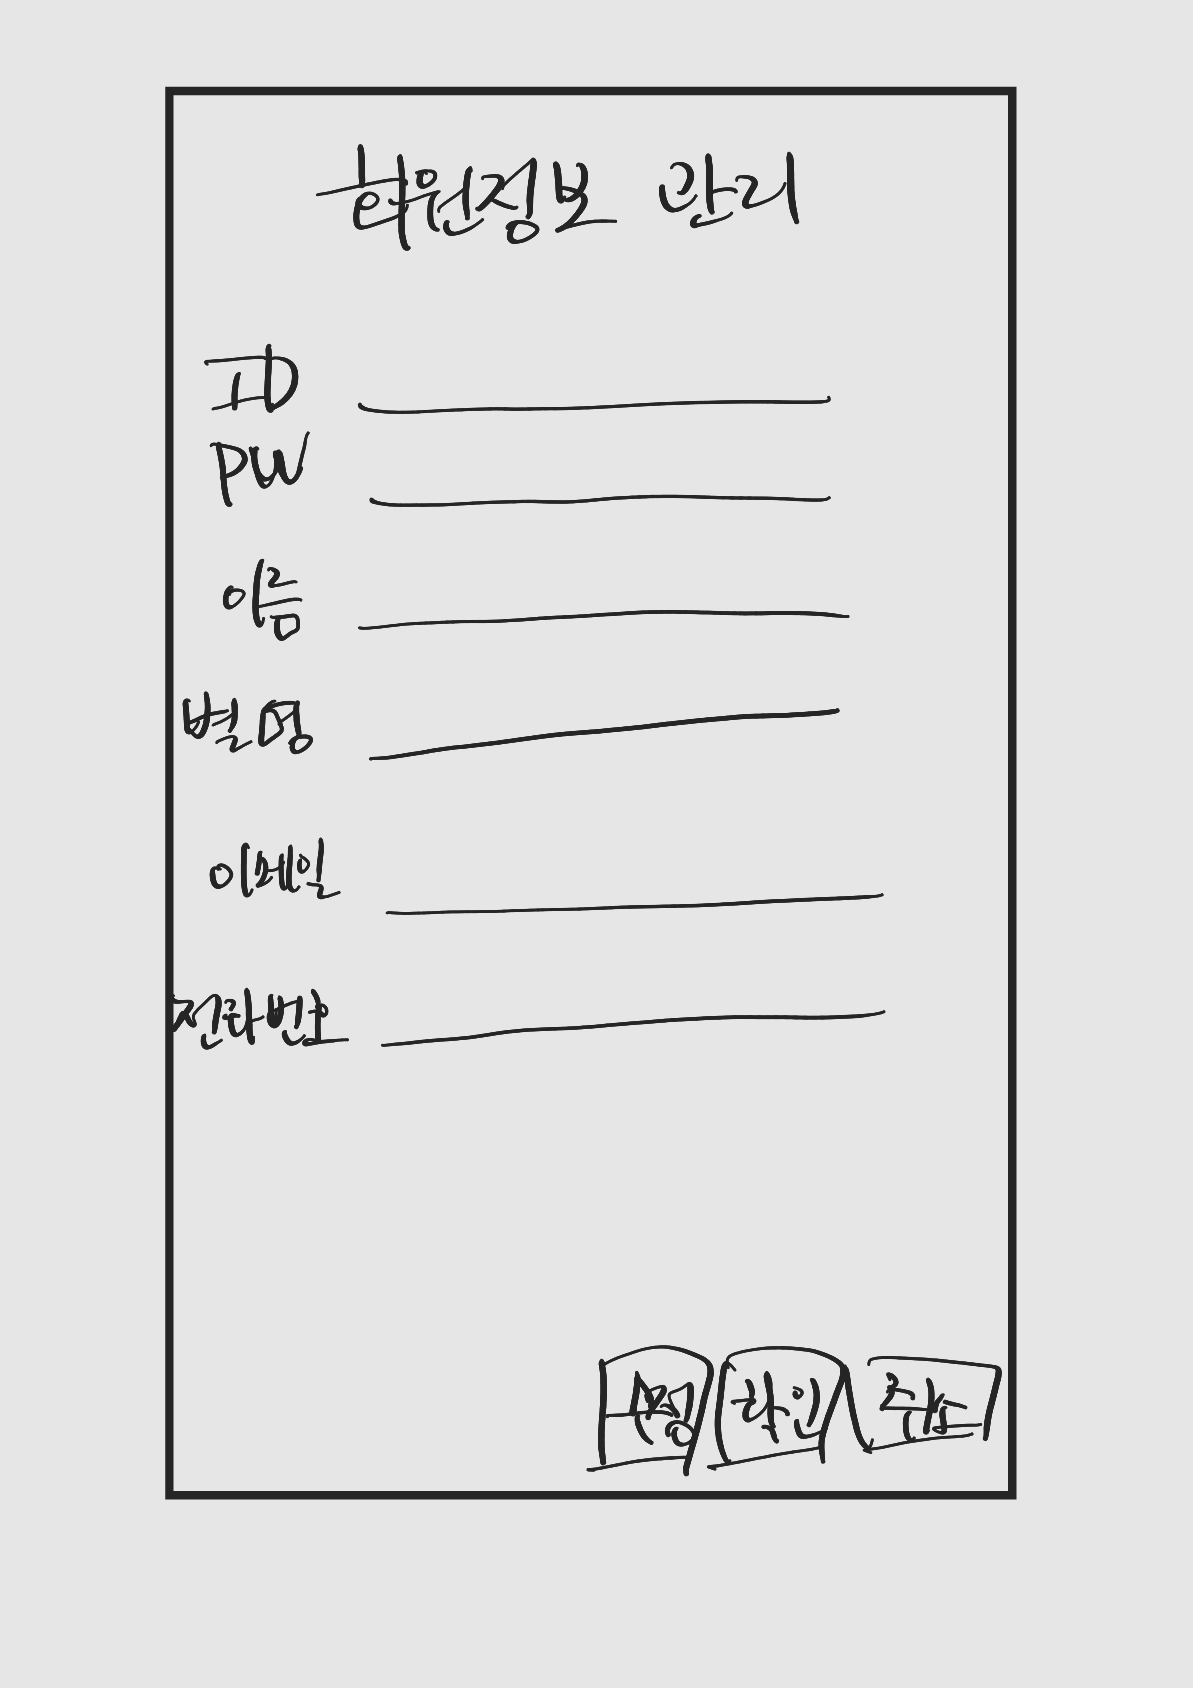 회원정보 관리
ID
PW
이름
별명
이메일
전화번호
수정 확인 취소